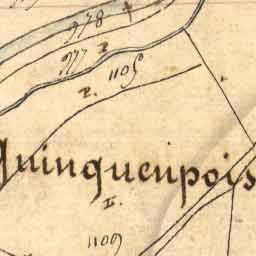 978
977 2
1105
2.
Quinquenpois
II.
1109